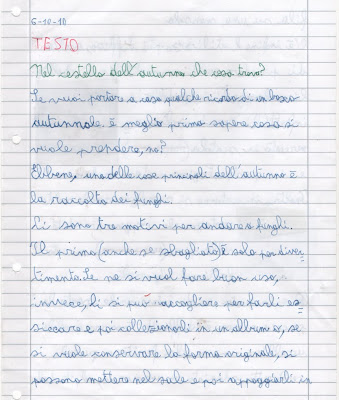 6-10-10
TESTO
Nel cestello dell'autunno, che cosa trovo?
Se vuoi portare a casa qualche ricordo di un bosco
autunnale, è meglio prima sapere cosa si
vuole prendere, no?
Ebbene, una delle cose principali dell'autunno è
la raccolta dei funghi.
Ci sono tre motivi per andare a funghi.
Il primo (anche se sbagliato) è solo per diver=
timento. Se ne si vuol fare buon uso,
invece, li si può raccogliere per farli es=
siccare e poi collezionarli in un album o, se
si vuole conservare la forma originale, si
possono mettere nel sale e poi appoggiarli in